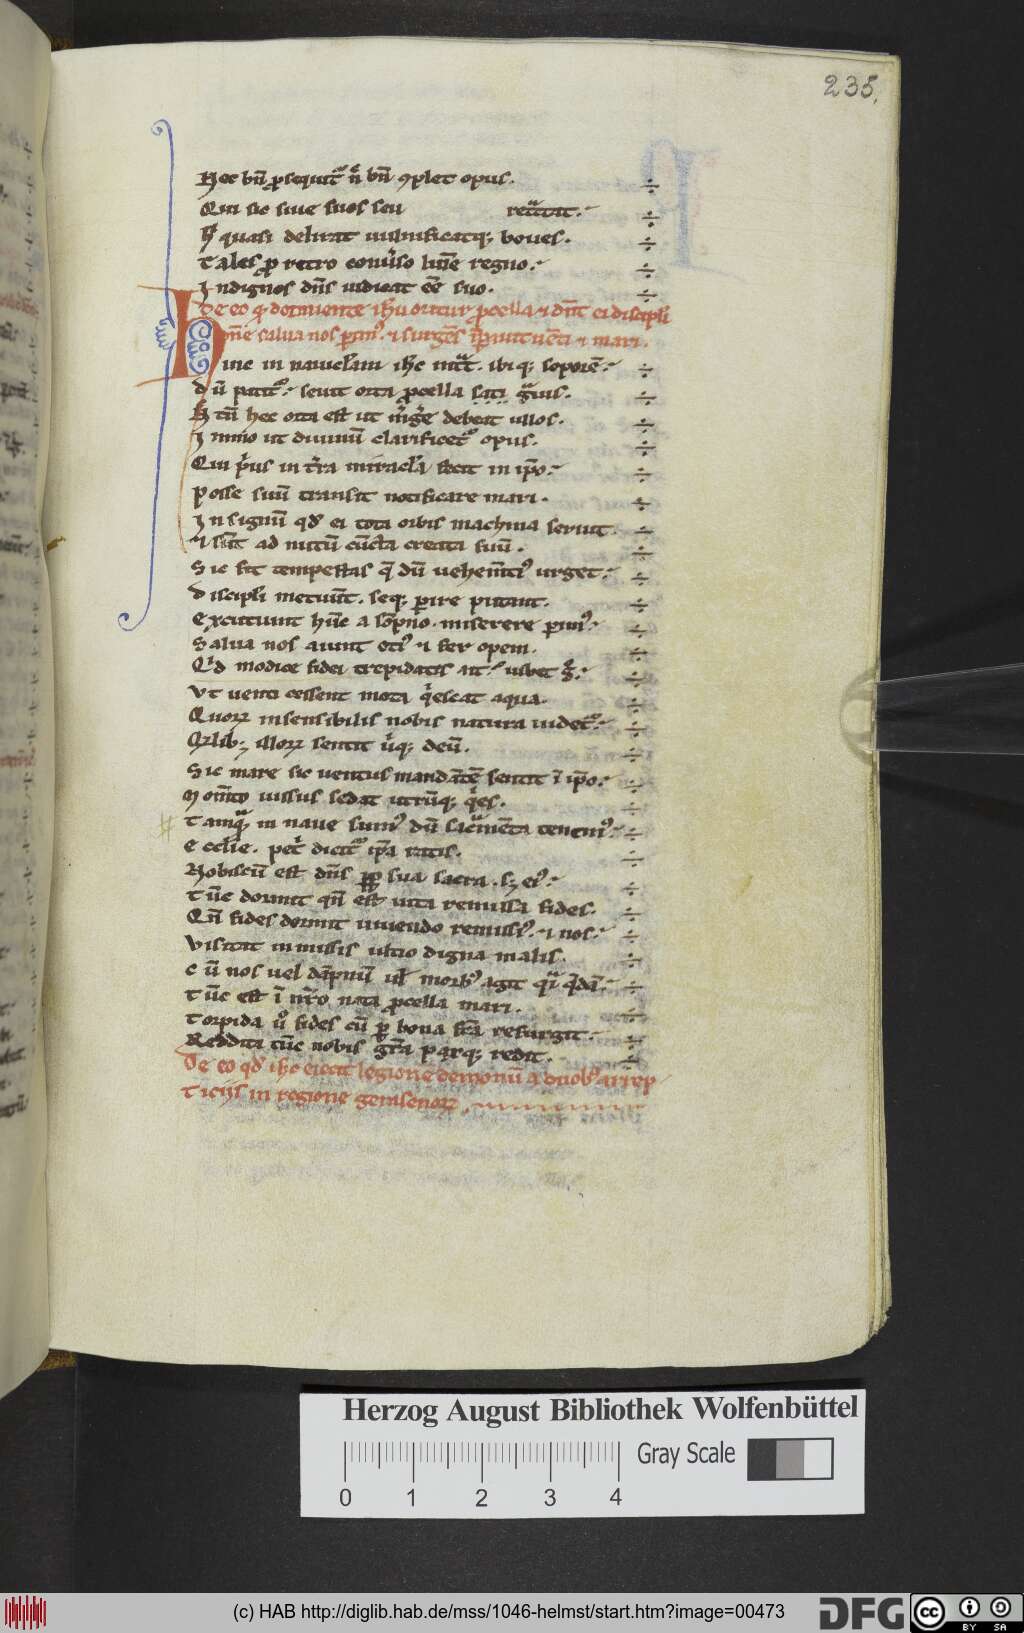 235.
Hec bn̄ ꝓsequit᷑ n̄ bn̄ ꝯplet opus.
Qui sic siue suos seu retͣctat.
quasi delirat uiuificatqꝫ boues.
Tales ꝓ retro conuˢso lumīe regno.
Indignos dn̄s iudicat eē suo.
De eo qd dormiente ihu oritur ꝓcella ⁊ dn̄t ei discipli
dn̄e salua nos ꝑimꝰ. ⁊ surgēs īꝑauit uēti ⁊ mari.
Hinc in nauiclam ihc intͣt. ibiqꝫ soporē.
dū patit᷑. seuit orta ꝓcella sati gͣuis.
tū hec orta est ut mˢgˢe debeat ullos.
Immo ut diuinū clarificet᷑ opus.
Qui pⁱus in tˢra miracla fecit in ip̄o.
Posse suū transit notificare mari.
In signū qd ei tota orbis machina seruit
⁊ sūt ad nutū cūcta creata suū.
Sic fit tempestas q̄ dū uehemēti urget.
Discipli metuūt. seqꝫ ꝑire putant.
Excutiunt hūc a sōpno. miserere ꝑimꝰ.
Salua nos aiunt ⁊ fer opem.
Qd modice fidei trepidatis ait. iubet
Vt uenti cessent mota qⁱescat aqua.
Quoꝝ insensibilis nobis natura uidet᷑.
Qˢlibꝫ illoꝝ sentit deū.
Sic mare sic uentus mandātē sentit ī ip̄o.
Momēto iussus sedat utrūqꝫ qⁱes.
Tamqͣ in naue sumꝰ dū sacͣmēta tenemꝰ.
Ecclie. petͥ dicit᷑ ip̄a ratis.
Nobiscū est dn̄s ꝓpͭ sua sacra. sꝫ eiꝰ.
Tūc dormit qn̄ est uita remissa fides.
Qn̄ fides dormit uiuendo remissiꝰ. ⁊ nos.
Visitat inmissis ultio digna malis.
Cū nos uel dāpnū ul morbꝰ agit qͣi q̄dā.
Tūc est ī nr̄o nata ꝓcella mari.
Torpida uͦ fides cū ꝑ bona fcā resurgit.
Reddita tūc nobis gr̄a parqꝫ redit.
De eo qd ihc eiecit legione demonū a duobꝰ arrep
ticijs in regione gerasenoꝝ.
Herzog August Bibliothek Wolfenbüttel
Gray Scale
0 1 2 3 4
(c) HAB http://diglib.hab.de/mss/1046-helmst/start.htm?image=00473
DFG
cc
BY SA